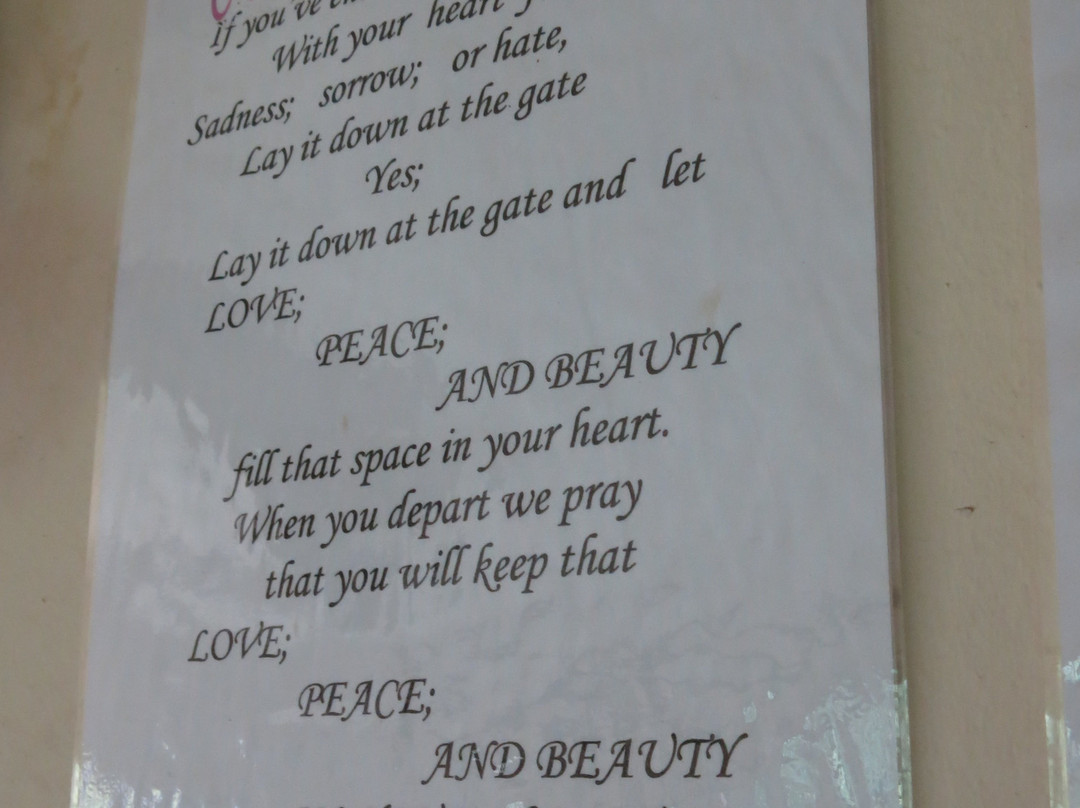 If you've
With your heart
Sadness; sorrow; or hate,
Lay it down at the gate
Yes;
Lay it down at the gate and let
LOVE;
PEACE;
AND BEAUTY
fill that space in your heart.
When you depart we pray
that you will keep that
LOVE;
PEACE;
AND BEAUTY